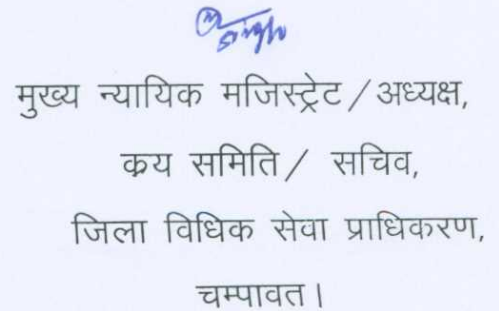 मुख्य न्यायिक मजिस्ट्रेट/अध्यक्ष,
क्रय समिति/ सचिव,
जिला विधिक सेवा प्राधिकरण,
चम्पावत।